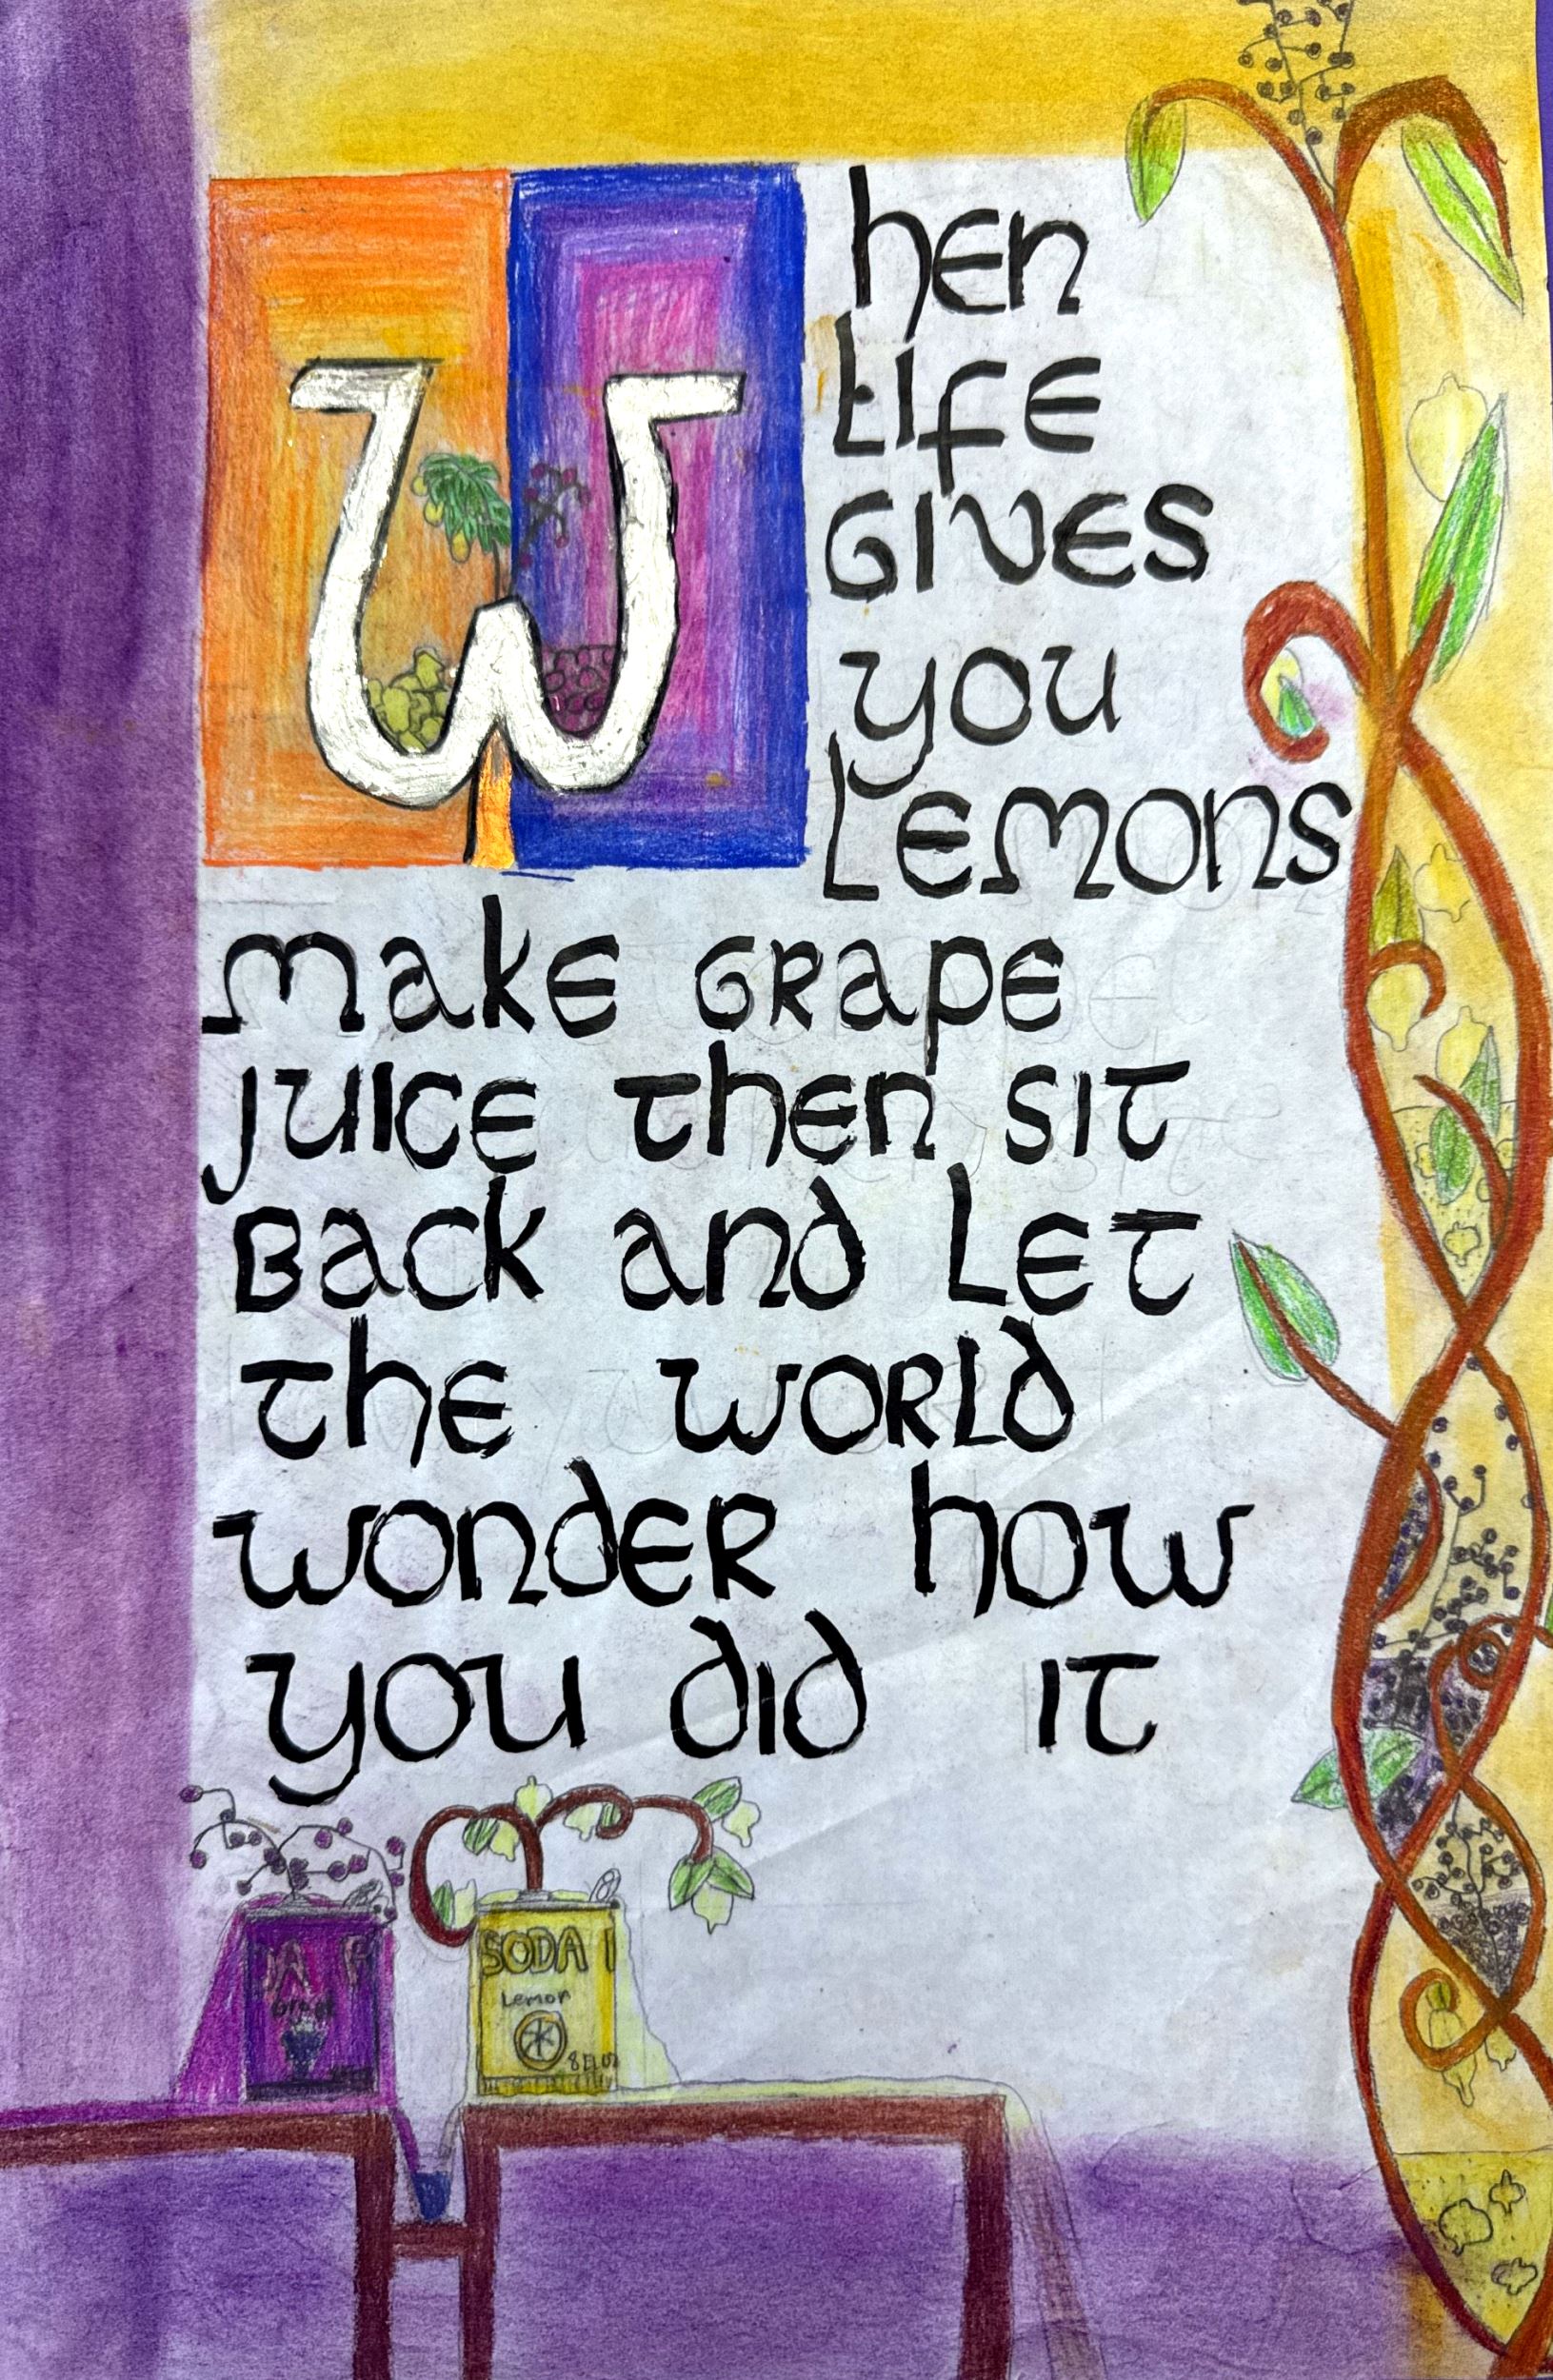 When
life
gives
you
lemons
make grape
juice then sit
back and let
the world
wonder how
you did it
SODA
Lemon